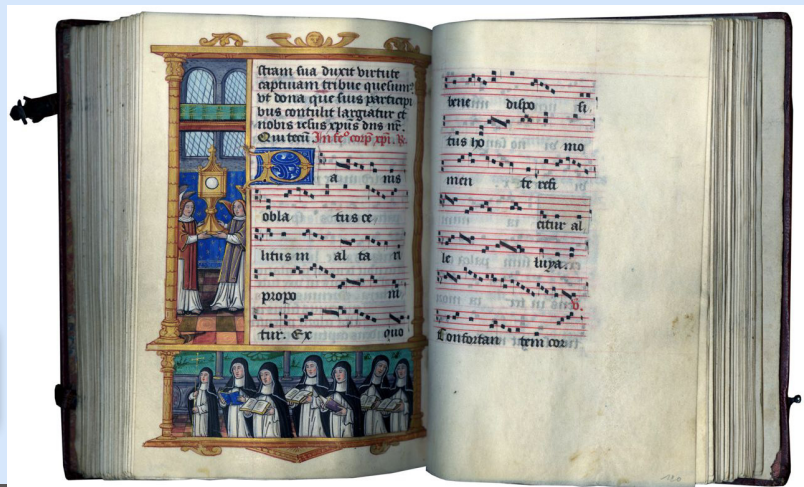 stram sua duxit virtute
captiuam tribue quesum
vt dona que suis particpi
bus contulit largiatur et
nobis iesus xpus dns nr.
Qui tecū In feº corp xpi. R.
Panis
obla tus ce
litus in al ta ri
propo ni
tur. Ex quo
bene dispo si
tus ho mo
men te refi
citur al
le luya. V.
Confortan tem cor